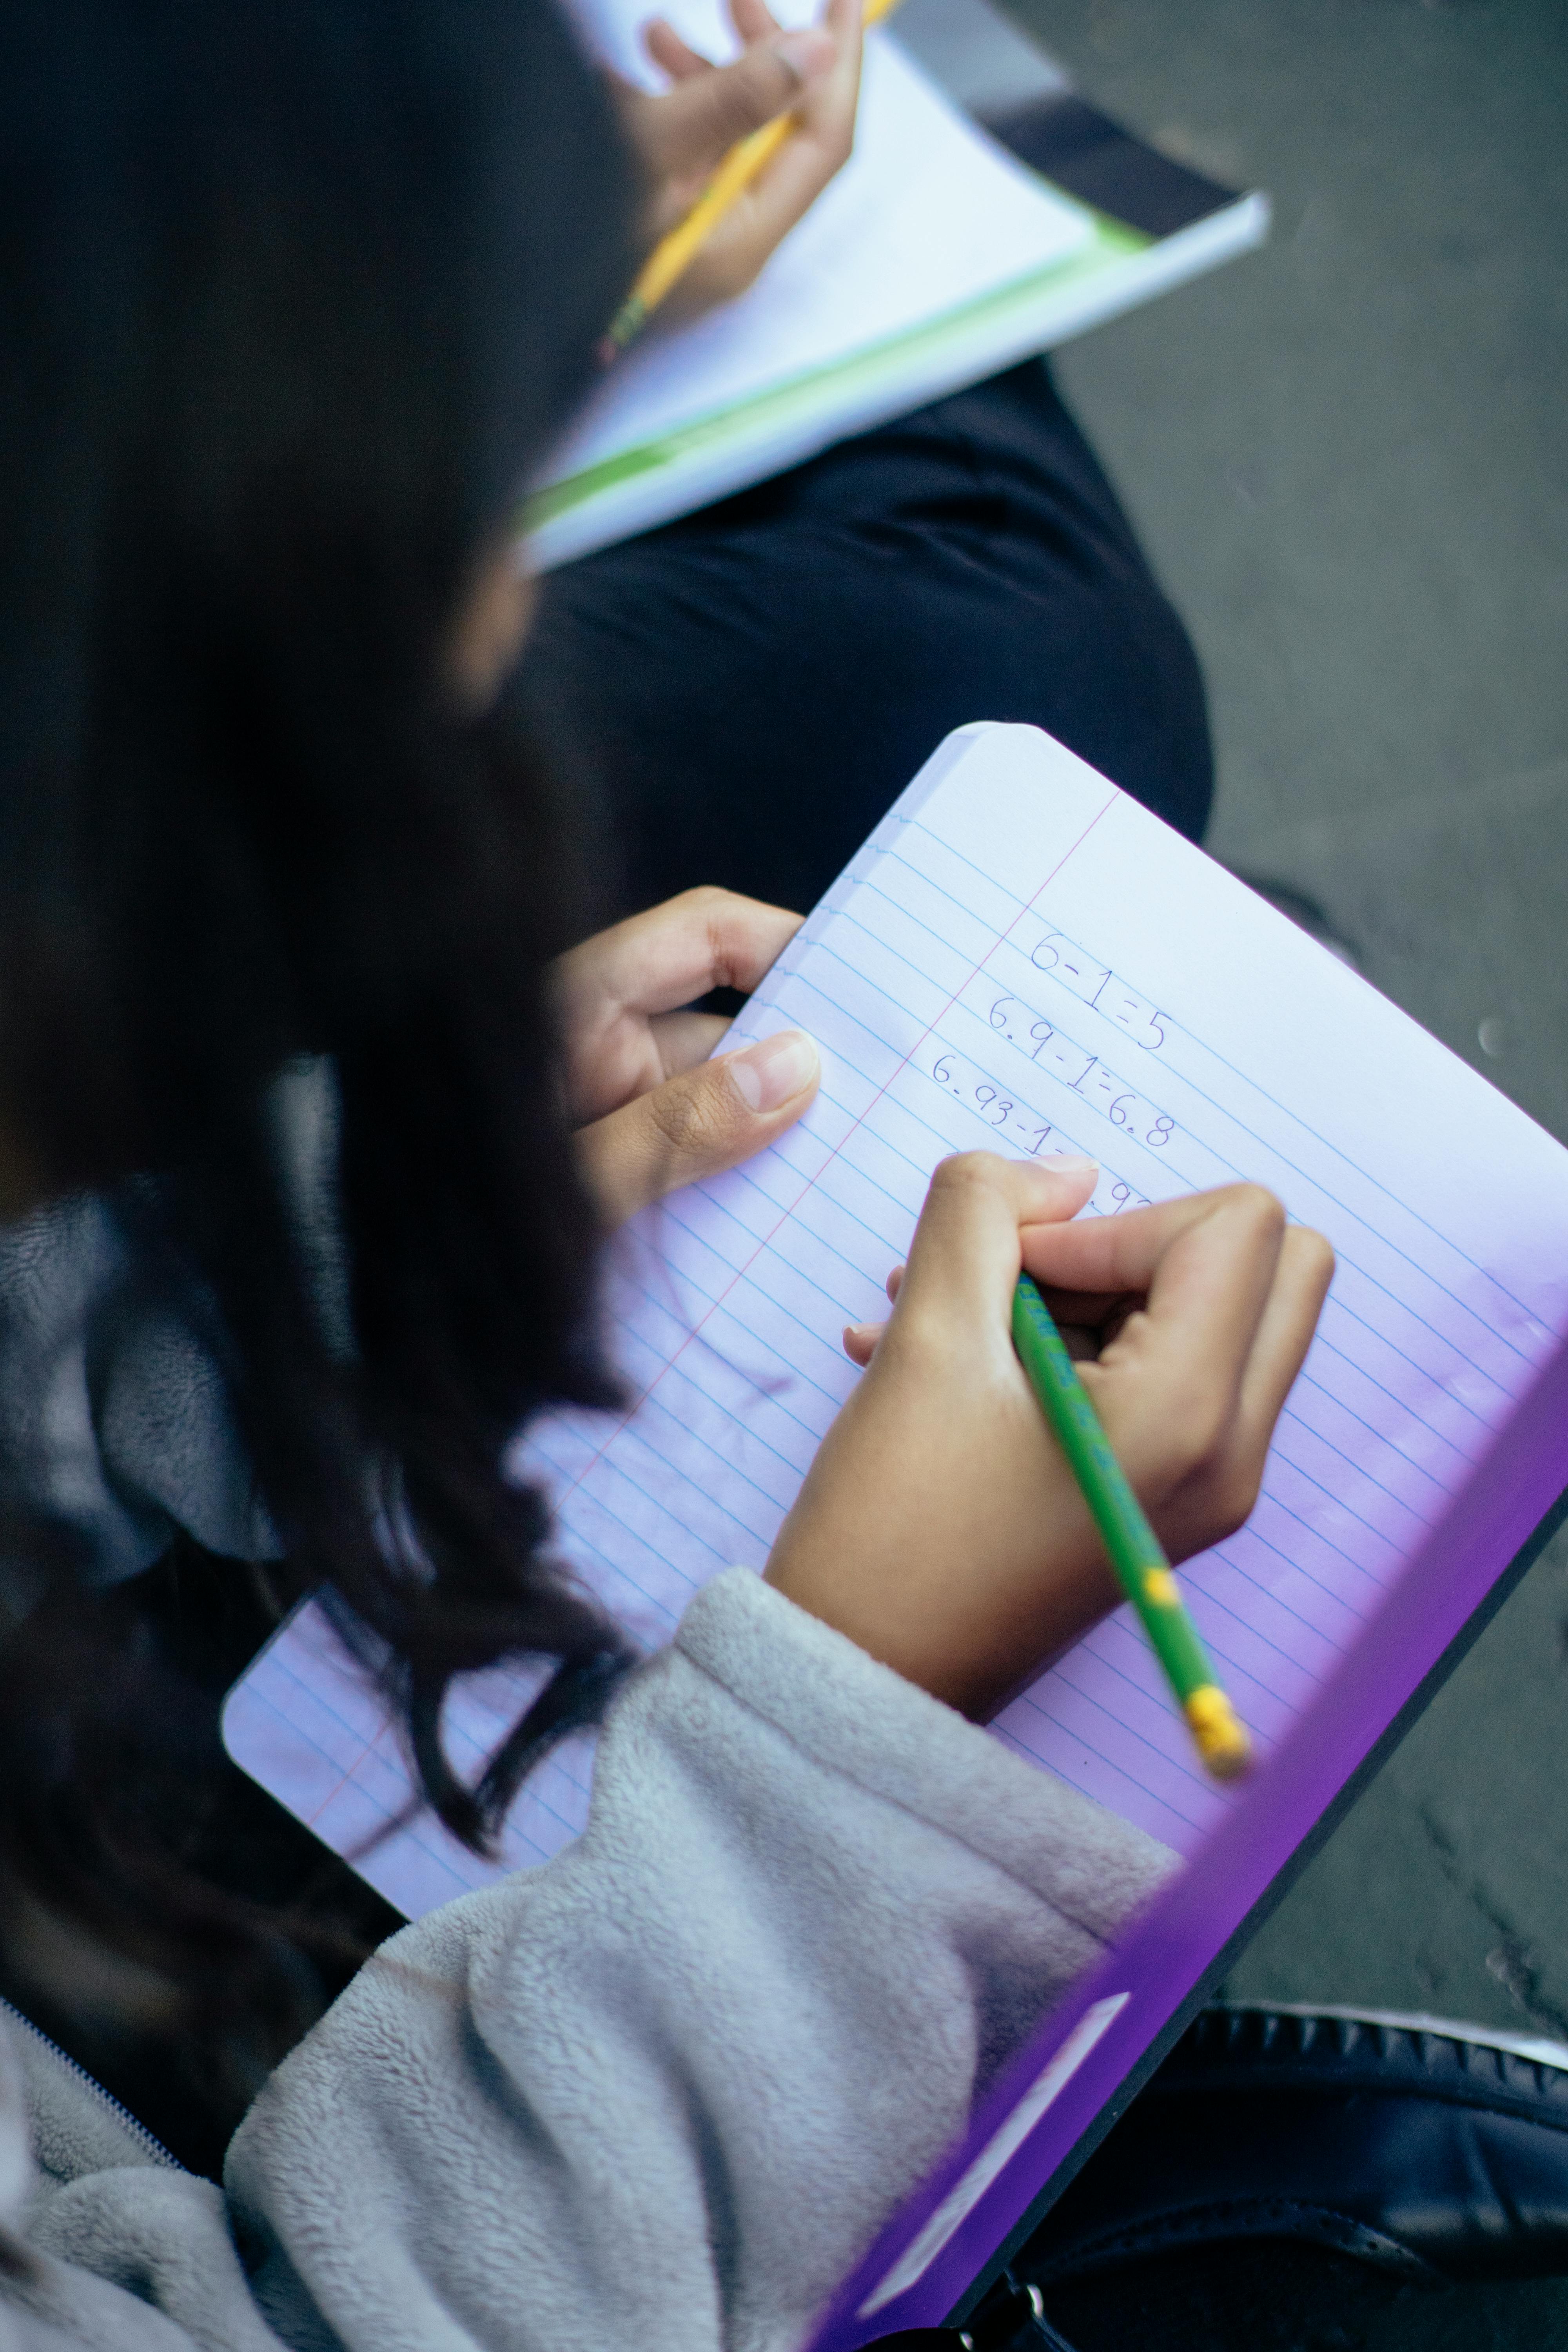 6-1=5
6.9-1=6.8
6.93-1=